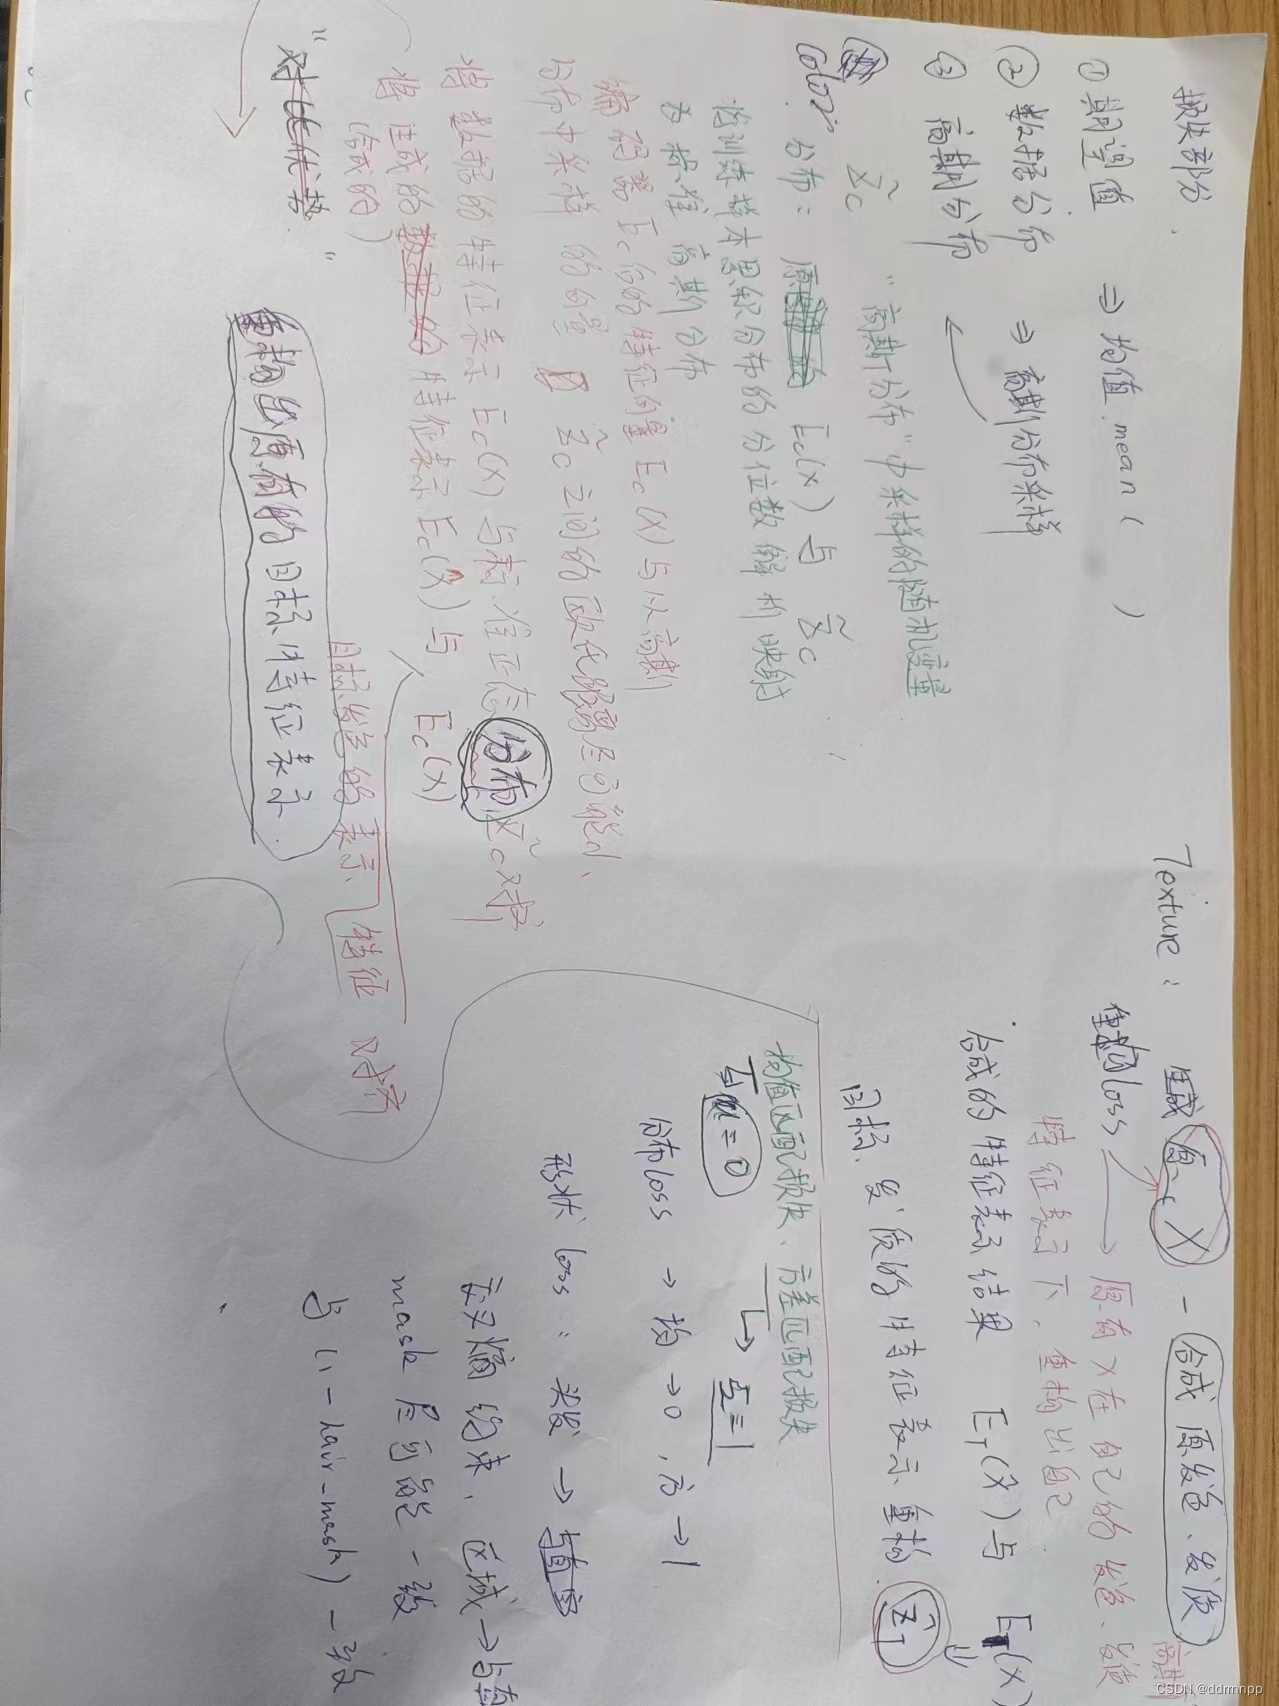 损失部分.
① 期望值 ⇒ 均值.mean( )
② 数据分布 ⇒ 高斯分布采样
③ 高斯分布
z̃c "高斯分布"中采样的随机变量
color 分布: Ec(x) 与 z̃c
将训练样本累积分布的分位数解析映射
为标准高斯分布
编码器Ec后的特征向量Ec(x)与从高斯
分布中采样的向量 z̃c之间的欧氏距离尽可能小、
将数据的特征表示Ec(x)与标准正态分布 z̃c对齐
将生成的数据的特征表示Ec(x̂)与 Ec(x)
(合成的)
目标发色的表示、特征 对齐
"对比优势"
重构出原有的目标特征表示.
Texture: 生成 原、x - 合成原发色、发质
重构loss → 原有x在自己的发色、发质
特征表示下,重构出自己
高斯
合成的特征表示结果 ET(x̂)与 ET(x)
目标、发质的特征表示重构. z̃T
均值匹配损失、方差匹配损失
与 =0 ↳ 与=1
分布loss → 均→0,方→1
形状loss: 染发 →
交叉熵约束、区域→与
mask尽可能一致
与(1-hair-mask)一致
CSDN @ddrrnnpp